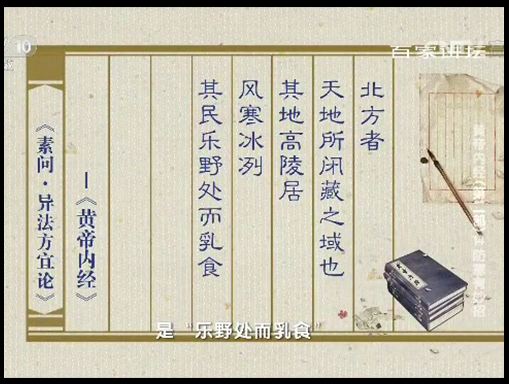 百家讲坛
北方者
天地所闭藏之域也
其地高陵居
风寒冰冽
其民乐野处而乳食
—《黄帝内经》
《素问·异法方宜论》
是“乐野处而乳食”